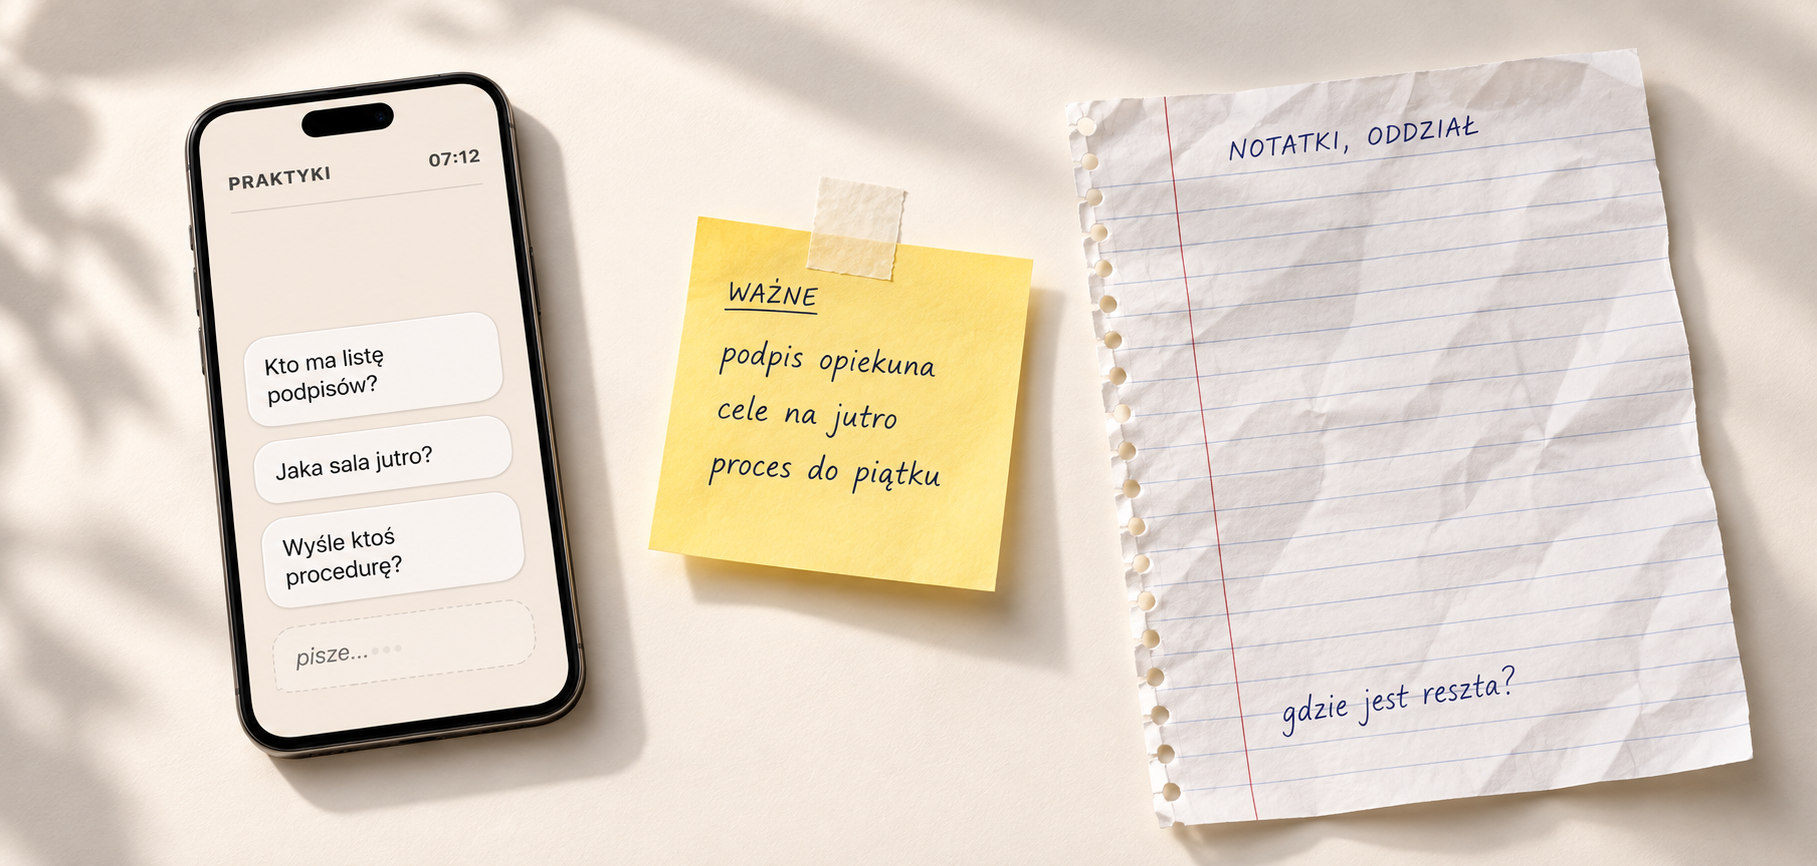 PRAKTYKI
07:12
Kto ma listę
podpisów?
Jaka sala jutro?
Wyśle ktoś
procedurę?
pisze...
WAŻNE
podpis opiekuna
cele na jutro
proces do piątku
NOTATKI, ODDZIAŁ
gdzie jest reszta?